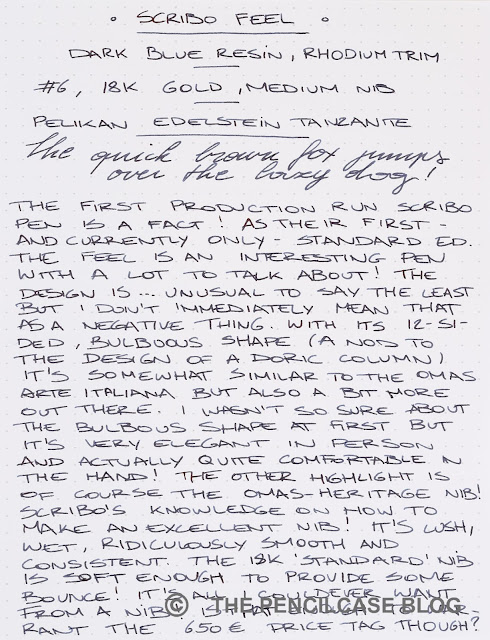 • SCRIBO FEEL •
DARK BLUE RESIN, RHODIUM TRIM
#6, 18K GOLD, MEDIUM NIB
PELIKAN EDELSTEIN TANZANITE
The quick brown fox jumps
over the lazy dog!
THE FIRST PRODUCTION RUN SCRIBO
PEN IS A FACT! AS THEIR FIRST -
AND CURRENTLY ONLY - STANDARD ED.
THE FEEL IS AN INTERESTING PEN
WITH A LOT TO TALK ABOUT! THE
DESIGN IS... UNUSUAL TO SAY THE LEAST
BUT I DON'T IMMEDIATELY MEAN THAT
AS A NEGATIVE THING. WITH ITS 12-SI-
DED, BULBOUS SHAPE (A NOD TO
THE DESIGN OF A DORIC COLUMN)
IT'S SOMEWHAT SIMILAR TO THE OMAS
ARTE ITALIANA BUT ALSO A BIT MORE
OUT THERE. I WASN'T SO SURE ABOUT
THE BULBOUS SHAPE AT FIRST BUT
IT'S VERY ELEGANT IN PERSON
AND ACTUALLY QUITE COMFORTABLE IN
THE HAND! THE OTHER HIGHLIGHT IS
OF COURSE THE OMAS-HERITAGE NIB!
SCRIBO'S KNOWLEDGE ON HOW TO
MAKE AN EXCELLENT NIB! IT'S LUSH,
WET, RIDICULOUSLY SMOOTH AND
CONSISTENT. THE 18K 'STANDARD' NIB
IS SOFT ENOUGH TO PROVIDE SOME
BOUNCE! IT'S ALL I COULD EVER WANT
FROM A NIB. IS
© THE PENCILCASE BLOG
RANT THE 650€ PRICE TAG THOUGH?